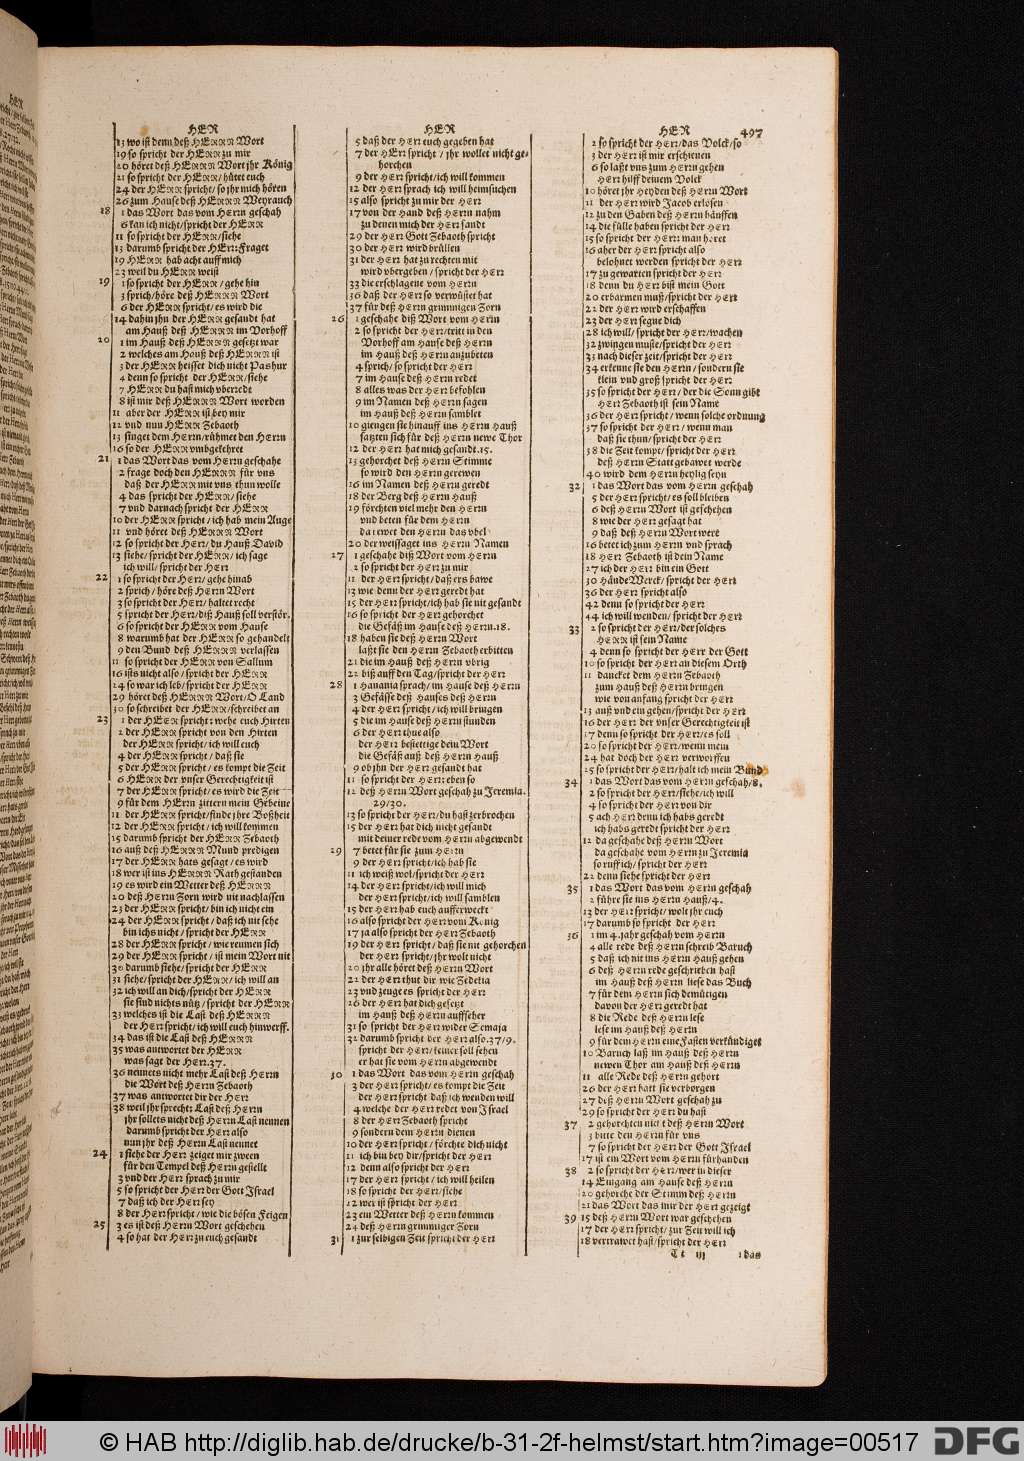 HER
13 wo ist denn deß HERRN Wort
19 so spricht der HERR zu mir
20 höret deß HERRN Wort jhr König
21 so spricht der HERR / hütet euch
24 der HERR spricht / so jhr mich hören
26 zum Hause deß HERRN Weyrauch
18 1 das Wort das vom HErrn geschah
6 kan ich nicht / spricht der HERR
11 so spricht der HERR / siehe
13 darumb spricht der HERR: Fraget
19 HERR hab acht auff mich
23 weil du HERR weist
19 1 so spricht der HERR / gehe hin
3 sprich / höre deß HERRN Wort
6 der HERR spricht / es wird die
14 dahin jhn der HERR gesandt hat
am Hauß deß HERRN im Vorhoff
20 1 im Hauß deß HERRN gesetzt war
2 welches am Hauß deß HERRN ist
3 der HERR heisset dich nicht Pashur
4 denn so spricht der HERR / siehe
7 HERR du hast mich vberredt
8 ist mir deß HERRN Wort worden
11 aber der HERR ist bey mir
12 vnd nun HERR Zebaoth
13 singet dem HErrn / rühmet den HErrn
16 so der HERR vmbgekehret
21 1 das Wort das vom HErrn geschahe
2 frage doch den HERRN für vns
daß der HERR mit vns thun wolle
4 das spricht der HERR / siehe
7 vnd darnach spricht der HERR
10 der HERR spricht / ich hab mein Auge
11 vnd höret deß HERRN Wort
12 so spricht der HErr / du Hauß David
13 siehe / spricht der HERR / ich sage
ich will / spricht der HErr
22 1 so spricht der HErr / gehe hinab
2 sprich / höre deß HErrn Wort
3 so spricht der HErr / haltet recht
5 spricht der HErr / diß Hauß soll verstör.
6 so spricht der HERR vom Hause
8 warumb hat der HERR so gehandelt
9 den Bund deß HERRN verlassen
11 so spricht der HERR von Sallum
16 ists nicht also / spricht der HERR
24 so war ich leb / spricht der HERR
29 höret deß HERRN Wort / O Land
30 so schreibet der HERR / schreibet an
23 1 der HERR spricht: wehe euch Hirten
2 der HERR spricht von den Hirten
der HERR spricht / ich will euch
4 der HERR spricht / daß sie
5 der HERR spricht / es kompt die Zeit
6 HERR der vnser Gerechtigkeit ist
7 der HERR spricht / es wird die Zeit
9 für dem HErrn zittern mein Gebeine
11 der HERR spricht / finde jhre Boßheit
12 der HERR spricht / ich will kommen
15 darumb spricht der HERR Zebaoth
16 auß deß HERRN Mund predigen
17 der HERR hats gesagt / es wird
18 wer ist ins HERRN Rath gestanden
19 es wird ein Wetter deß HERRN
20 deß HErrn Zorn wird nit nachlassen
23 der HERR spricht / bin ich nicht ein
24 der HERR spricht / daß ich nit sehe
bin ichs nicht / spricht der HERR
28 der HERR spricht / wie reumen sich
29 der HERR spricht / ist mein Wort nit
30 darumb siehe / spricht der HERR
31 siehe / spricht der HERR / ich will an
32 ich will an dich / spricht der HERR
sie sind nichts nütz / spricht der HERR
33 welches ist die Last deß HERRN
der HErr spricht / ich will euch hinwerff.
34 das ist die Last deß HERRN
35 was antwortet der HERR
was sagt der HErr. 37.
36 nennets nicht mehr Last deß HErrn
die Wort deß HErrn Zebaoth
37 was antwortet dir der HErr
38 weil jhr sprecht: Last deß HErrn
jhr sollets nicht deß HErrn Last nennen
darumb spricht der HErr also
nun jhr deß HErrn Last nennet
24 1 siehe der HErr zeiget mir zween
für den Tempel deß HErrn gestellt
3 vnd der HErr sprach zu mir
5 so spricht der HErr der Gott Israel
7 daß ich der HErr sey
8 der HErr spricht / wie die bösen Feigen
25 3 es ist deß HErrn Wort geschehen
4 so hat der HErr zu euch gesandt
HER
5 daß der HErr euch gegeben hat
7 der HErr spricht / jhr wollet nicht ge-
horchen
9 der HErr spricht / ich will kommen
12 der HErr sprach ich will heimsuchen
15 also spricht zu mir der HErr
17 von der Hand deß HErrn nahm
zu denen mich der HErr sandt
29 der HErr Gott Zebaoth spricht
30 der HErr wird brüllen
31 der HErr hat zu rechten mit
wird vbergeben / spricht der HErr
33 die erschlagene vom HErrn
36 daß der HErr so verwüstet hat
37 für deß HErrn grimmigen Zorn
26 1 geschahe diß Wort vom HErrn
2 so spricht der HErr / tritt in den
Vorhoff am Hause deß HErrn
im Hauß deß HErrn anzubeten
4 sprich / so spricht der HErr
7 im Hause deß HErrn redet
8 alles was der HErr befohlen
9 im Namen deß HErrn sagen
im Hauß deß HErrn samblet
10 giengen sie hinauff ins HErrn Hauß
satzten sich für deß HErrn newe Thor
12 der HErr hat mich gesandt. 15.
13 gehorchet deß HErrn Stimme
so wird den HErrn gerewen
16 im Namen deß HErrn geredt
18 der Berg deß HErrn Hauß
19 förchten viel mehr den HErrn
vnd beten für dem HErrn
da rewet den HErrn das vbel
20 der weissaget ins HErrn Namen
27 1 geschahe diß Wort vom HErrn
2 so spricht der HErr zu mir
11 der HErr spricht / daß ers bawe
13 wie denn der HErr geredt hat
15 der HErr spricht / ich hab sie nit gesandt
16 so spricht der HErr gehorchet
die Gefäß im Hause deß HErrn. 18.
18 haben sie deß HErrn Wort
laßt sie den HErrn Zebaoth erbitten
21 die im Hauß deß HErrn vbrig
22 biß auff den Tag / spricht der HErr
28 1 Hanania sprach / im Hause deß HErrn
3 Gefässe deß Hauses deß HErrn
4 der HErr spricht / ich will bringen
5 die im Hause deß HErrn stunden
6 der HErr thue also
der HErr bestettige dein Wort
die Gefäß auß deß HErrn Hauß
9 ob jhn der HErr gesandt hat
11 so spricht der HErr: eben so
12 deß HErrn Wort geschah zu Jeremia.
29/30.
13 so spricht der HErr / du hast zerbrochen
15 der HErr hat dich nicht gesandt
mit deiner rede vom HErrn abgewendt
29 7 betet für sie zum HErrn
9 der HErr spricht / ich hab sie
11 ich weiß wol / spricht der HErr
14 der HErr spricht / ich will mich
der HErr spricht / ich will samblen
15 der HErr hab euch aufferweckt
16 also spricht der HErr vom König
17 ja also spricht der HErr Zebaoth
19 der HErr spricht / daß sie nit gehorchen
der HErr spricht / jhr wolt nicht
20 jhr alle höret deß HErrn Wort
22 der HErr thut dir wie Zedekia
23 vnd zeuge es spricht der HErr
26 der HErr hat dich gesetzt
im Hauß deß HErrn auffseher
31 so spricht der HErr wider Semaja
32 darumb spricht der HErr also. 37/9.
spricht der HErr / keiner soll sehen
er hat sie vom HErrn abgewendt
30 1 das Wort das vom HErrn geschah
3 der HErr spricht / es kompt die Zeit
der HErr spricht daß ich wenden will
4 welche der HErr redet von Israel
8 der HErr Zebaoth spricht
9 sondern dem HErrn dienen
10 der HErr spricht / förchte dich nicht
11 ich bin bey dir / spricht der HErr
12 denn also spricht der HErr
17 der HErr spricht / ich will heilen
18 so spricht der HErr / siehe
22 wer ist spricht der HErr
23 ein Wetter deß HErrn kommen
24 deß HErrn grimmiger Zorn
31 1 zur selbigen Zeit spricht der HErr
HER 497
2 so spricht der HErr / das Volck / so
3 der HErr ist mir erschienen
6 so laßt vns zum HErrn gehen
HErr hilff deinem Volck
10 höret jhr Heyden deß HErrn Wort
11 der HErr wird Jacob erlösen
12 zu den Gaben deß HErrn häuffen
14 die fülle haben spricht der HErr
15 so spricht der HErr: man höret
16 aber der HErr spricht also
belohnet werden spricht der HErr
17 zu gewarten spricht der HErr
18 denn du HErr bist mein Gott
20 erbarmen muß / spricht der HErr
22 der HErr wird erschaffen
23 der HErr segne dich
28 ich will / spricht der HErr / wachen
32 zwingen muste / spricht der HErr
33 nach dieser zeit / spricht der HErr
34 erkenne sie den HErrn / sondern sie
klein vnd groß spricht der HErr
35 so spricht der HErr / der die Sonn gibt
HErr Zebaoth ist sein Name
36 der HErr spricht / wenn solche ordnung
37 so spricht der HErr / wenn man
daß sie thun / spricht der HErr
38 die Zeit kompt / spricht der HErr
deß HErrn Statt gebawet werde
40 wird dem HErrn heylig seyn
32 1 das Wort das vom HErrn geschah
5 der HErr spricht / es soll bleiben
6 deß HErrn Wort ist geschehen
8 wie der HErr gesagt hat
9 daß deß HErrn Wort were
16 betet ich zum HErrn vnd sprach
18 HErr Zebaoth ist dein Name
27 ich der HErr bin ein Gott
30 Hände Werck / spricht der HErr
36 der HErr spricht also
42 denn so spricht der HErr
44 ich will wenden / spricht der HErr
33 2 so spricht der HErr / der solches
HERR ist sein Name
4 denn so spricht der HErr der Gott
10 so spricht der HErr an diesem Orth
11 dancket dem HErrn Zebaoth
zum Hauß deß HErrn bringen
wie von anfang spricht der HErr
13 auß vnd ein gehen / spricht der HErr
16 der HErr der vnser Gerechtigkeit ist
17 denn so spricht der HErr / es soll
20 so spricht der HErr / wenn mein
24 hat doch der HErr verworffen
25 so spricht der HErr / halt ich mein Bund
34 1 das Wort das vom HErrn geschah / 8.
2 so spricht der HErr / siehe / ich will
4 so spricht der HErr von dir
5 ach HErr denn ich habs geredt
ich habs geredt spricht der HErr
12 da geschahe deß HErrn Wort
da geschahe vom HErrn zu Jeremia
so ruff ich / spricht der HErr
22 denn siehe spricht der HErr
35 1 das Wort das vom HErrn geschah
2 führe sie ins HErrn Hauß / 4.
13 der HErr spricht / wolt jhr euch
17 darumb so spricht der HErr
36 1 im 4. jahr geschah vom HErrn
4 alle rede deß HErrn schreib Baruch
5 daß ich nit ins HErrn Hauß gehen
6 deß HErrn rede geschrieben hast
im Hauß deß HErrn liese das Buch
7 für dem HErrn sich demütigen
davon der HErr geredt hat
8 die Rede deß HErrn lese
lese im Hauß deß HErrn
9 für dem HErrn eine Fasten verkündiget
10 Baruch laß im Hauß deß HErrn
newen Thor am Hauß deß HErrn
11 alle Rede deß HErrn gehört
26 der HErr hatt sie verborgen
27 deß HErrn Wort geschah zu
29 so spricht der HErr du hast
37 2 gehorchten nicht deß HErrn Wort
3 bitte den HErrn für vns
7 so spricht der HErr der Gott Israel
17 ist ein Wort vom HErrn fürhanden
38 2 so spricht der HErr / wer in dieser
14 Eingang am Hause deß HErrn
20 gehorche der Stimm deß HErrn
21 das Wort das mir der HErr gezeigt
39 15 deß HErrn Wort war geschehen
17 der HErr spricht / zur Zeit will ich
18 vertrawet hast / spricht der HErr
Tt iij 1 das
© HAB http://diglib.hab.de/drucke/b-31-2f-helmst/start.htm?image=00517
DFG